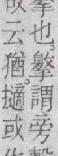 擊也擊謂旁擊
故云猶擿或作